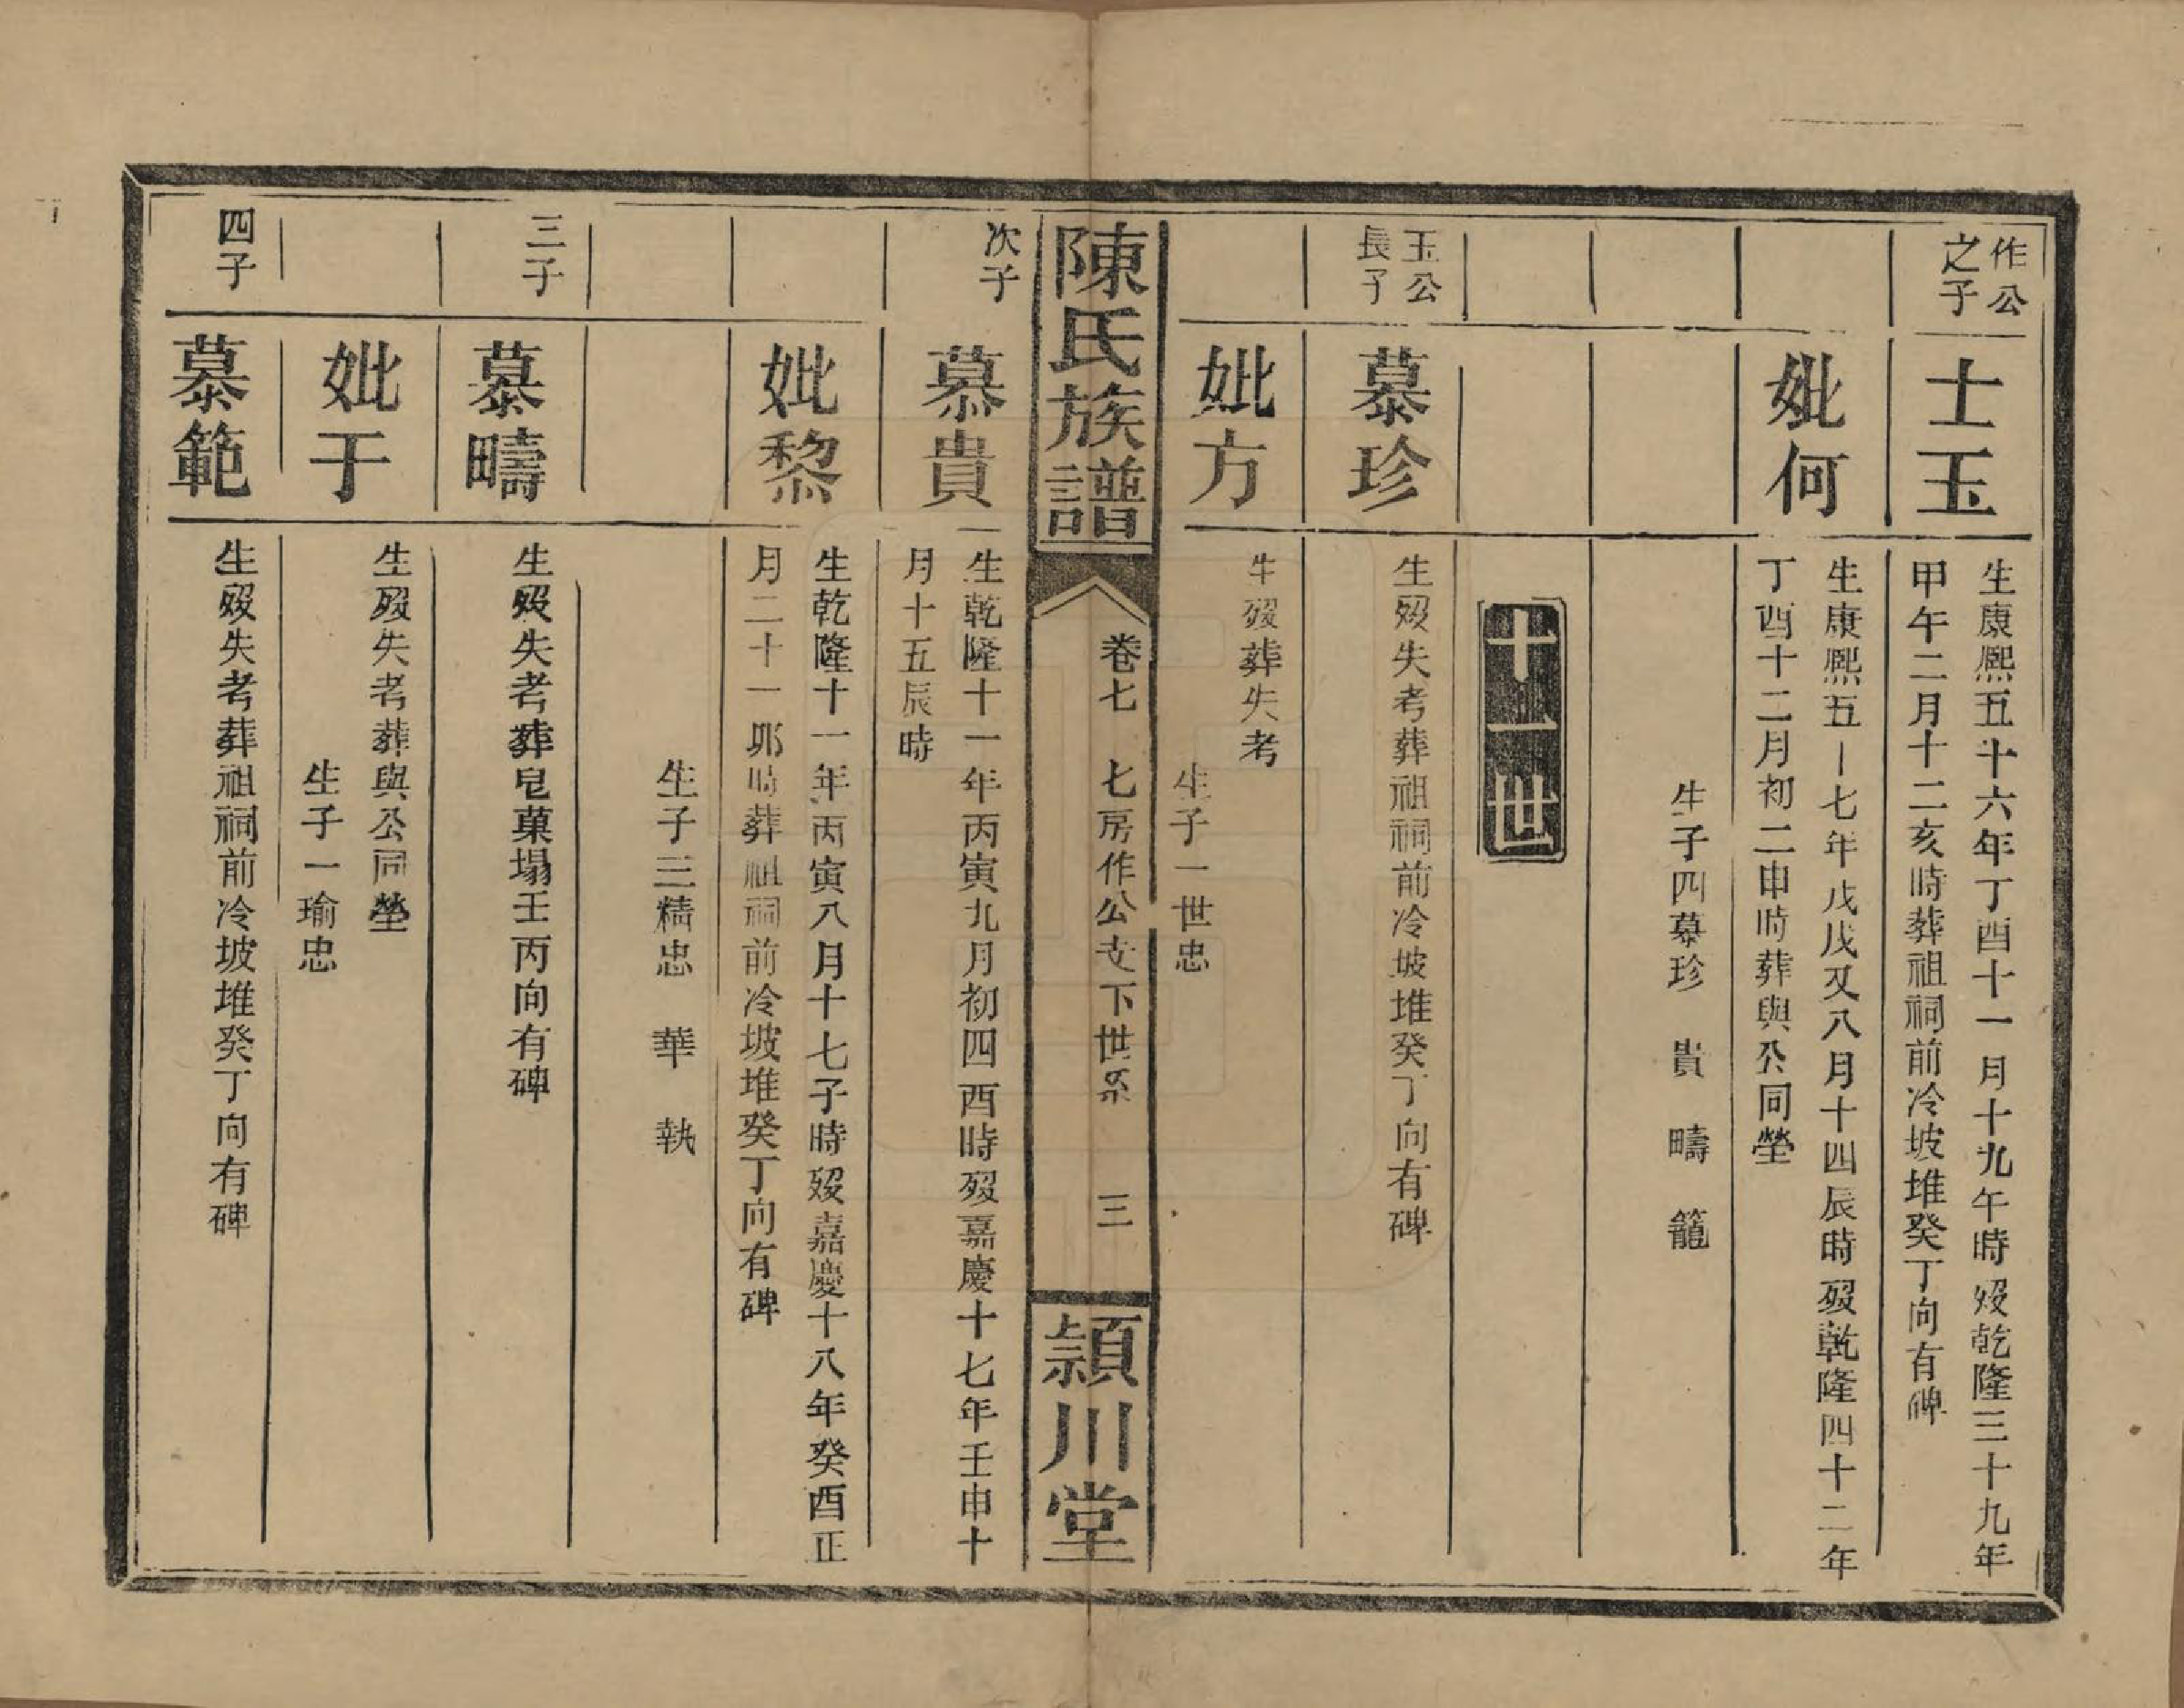 作公
之子
士玉
生康熙五十六年丁酉十一月十九午時歿乾隆三十九年
甲午二月十二亥時葬祖祠前冷坡堆癸丁向有碑
妣何
生康熙五十七年戊戌又八月十四辰時歿乾隆四十二年
丁酉十二月初二申時葬與公同塋
生子四慕珍 貴 疇 籠
十一世
玉公
長子
慕珍
生歿失考葬祖祠前冷坡堆癸丁向有碑
妣方
生歿葬失考
生子一世忠
陳氏族譜
卷七 七房作公支下世系 三
潁川堂
次子
慕貴
生乾隆十一年丙寅九月初四酉時歿嘉慶十七年壬申十
一月十五辰時
妣黎
生乾隆十一年丙寅八月十七子時歿嘉慶十八年癸酉正
月二十一卯時葬祖祠前冷坡堆癸丁向有碑
生子三精忠 華 執
三子
慕疇
生歿失考葬皂菓塌壬丙向有碑
妣于
生歿失考葬與公同塋
生子一瑜忠
四子
慕範
生歿失考葬祖祠前冷坡堆癸丁向有碑